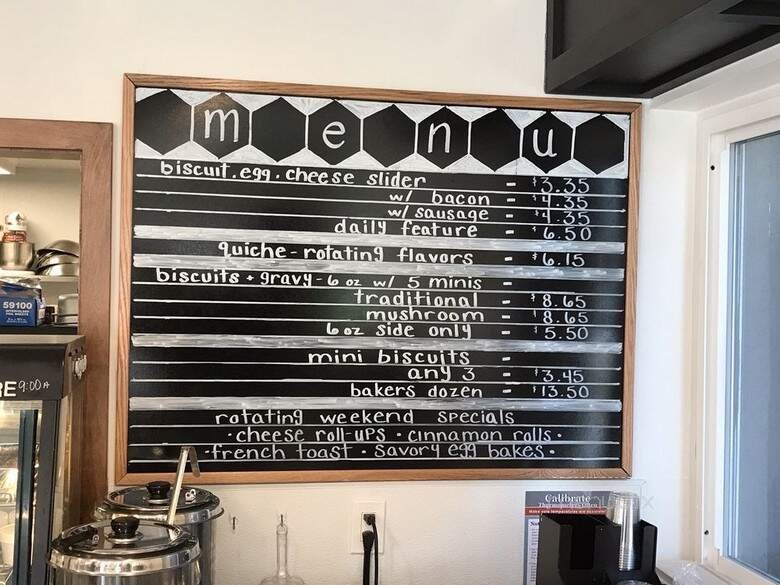 menu
biscuit.egg.cheese slider - $3.35
w/ bacon - $4.35
w/ sausage - $4.35
daily feature - $6.50
quiche - rotating flavors - $6.15
biscuits + gravy - 6 oz w/ 5 minis -
traditional - $8.65
mushroom - $8.65
6 oz side only - $5.50
mini biscuits -
any 3 - $3.45
bakers dozen - $13.50
rotating weekend specials
• cheese roll-ups • cinnamon rolls •
• french toast • savory egg bakes •
59100
RE 9:00A
Calibrate
Thermometers Often